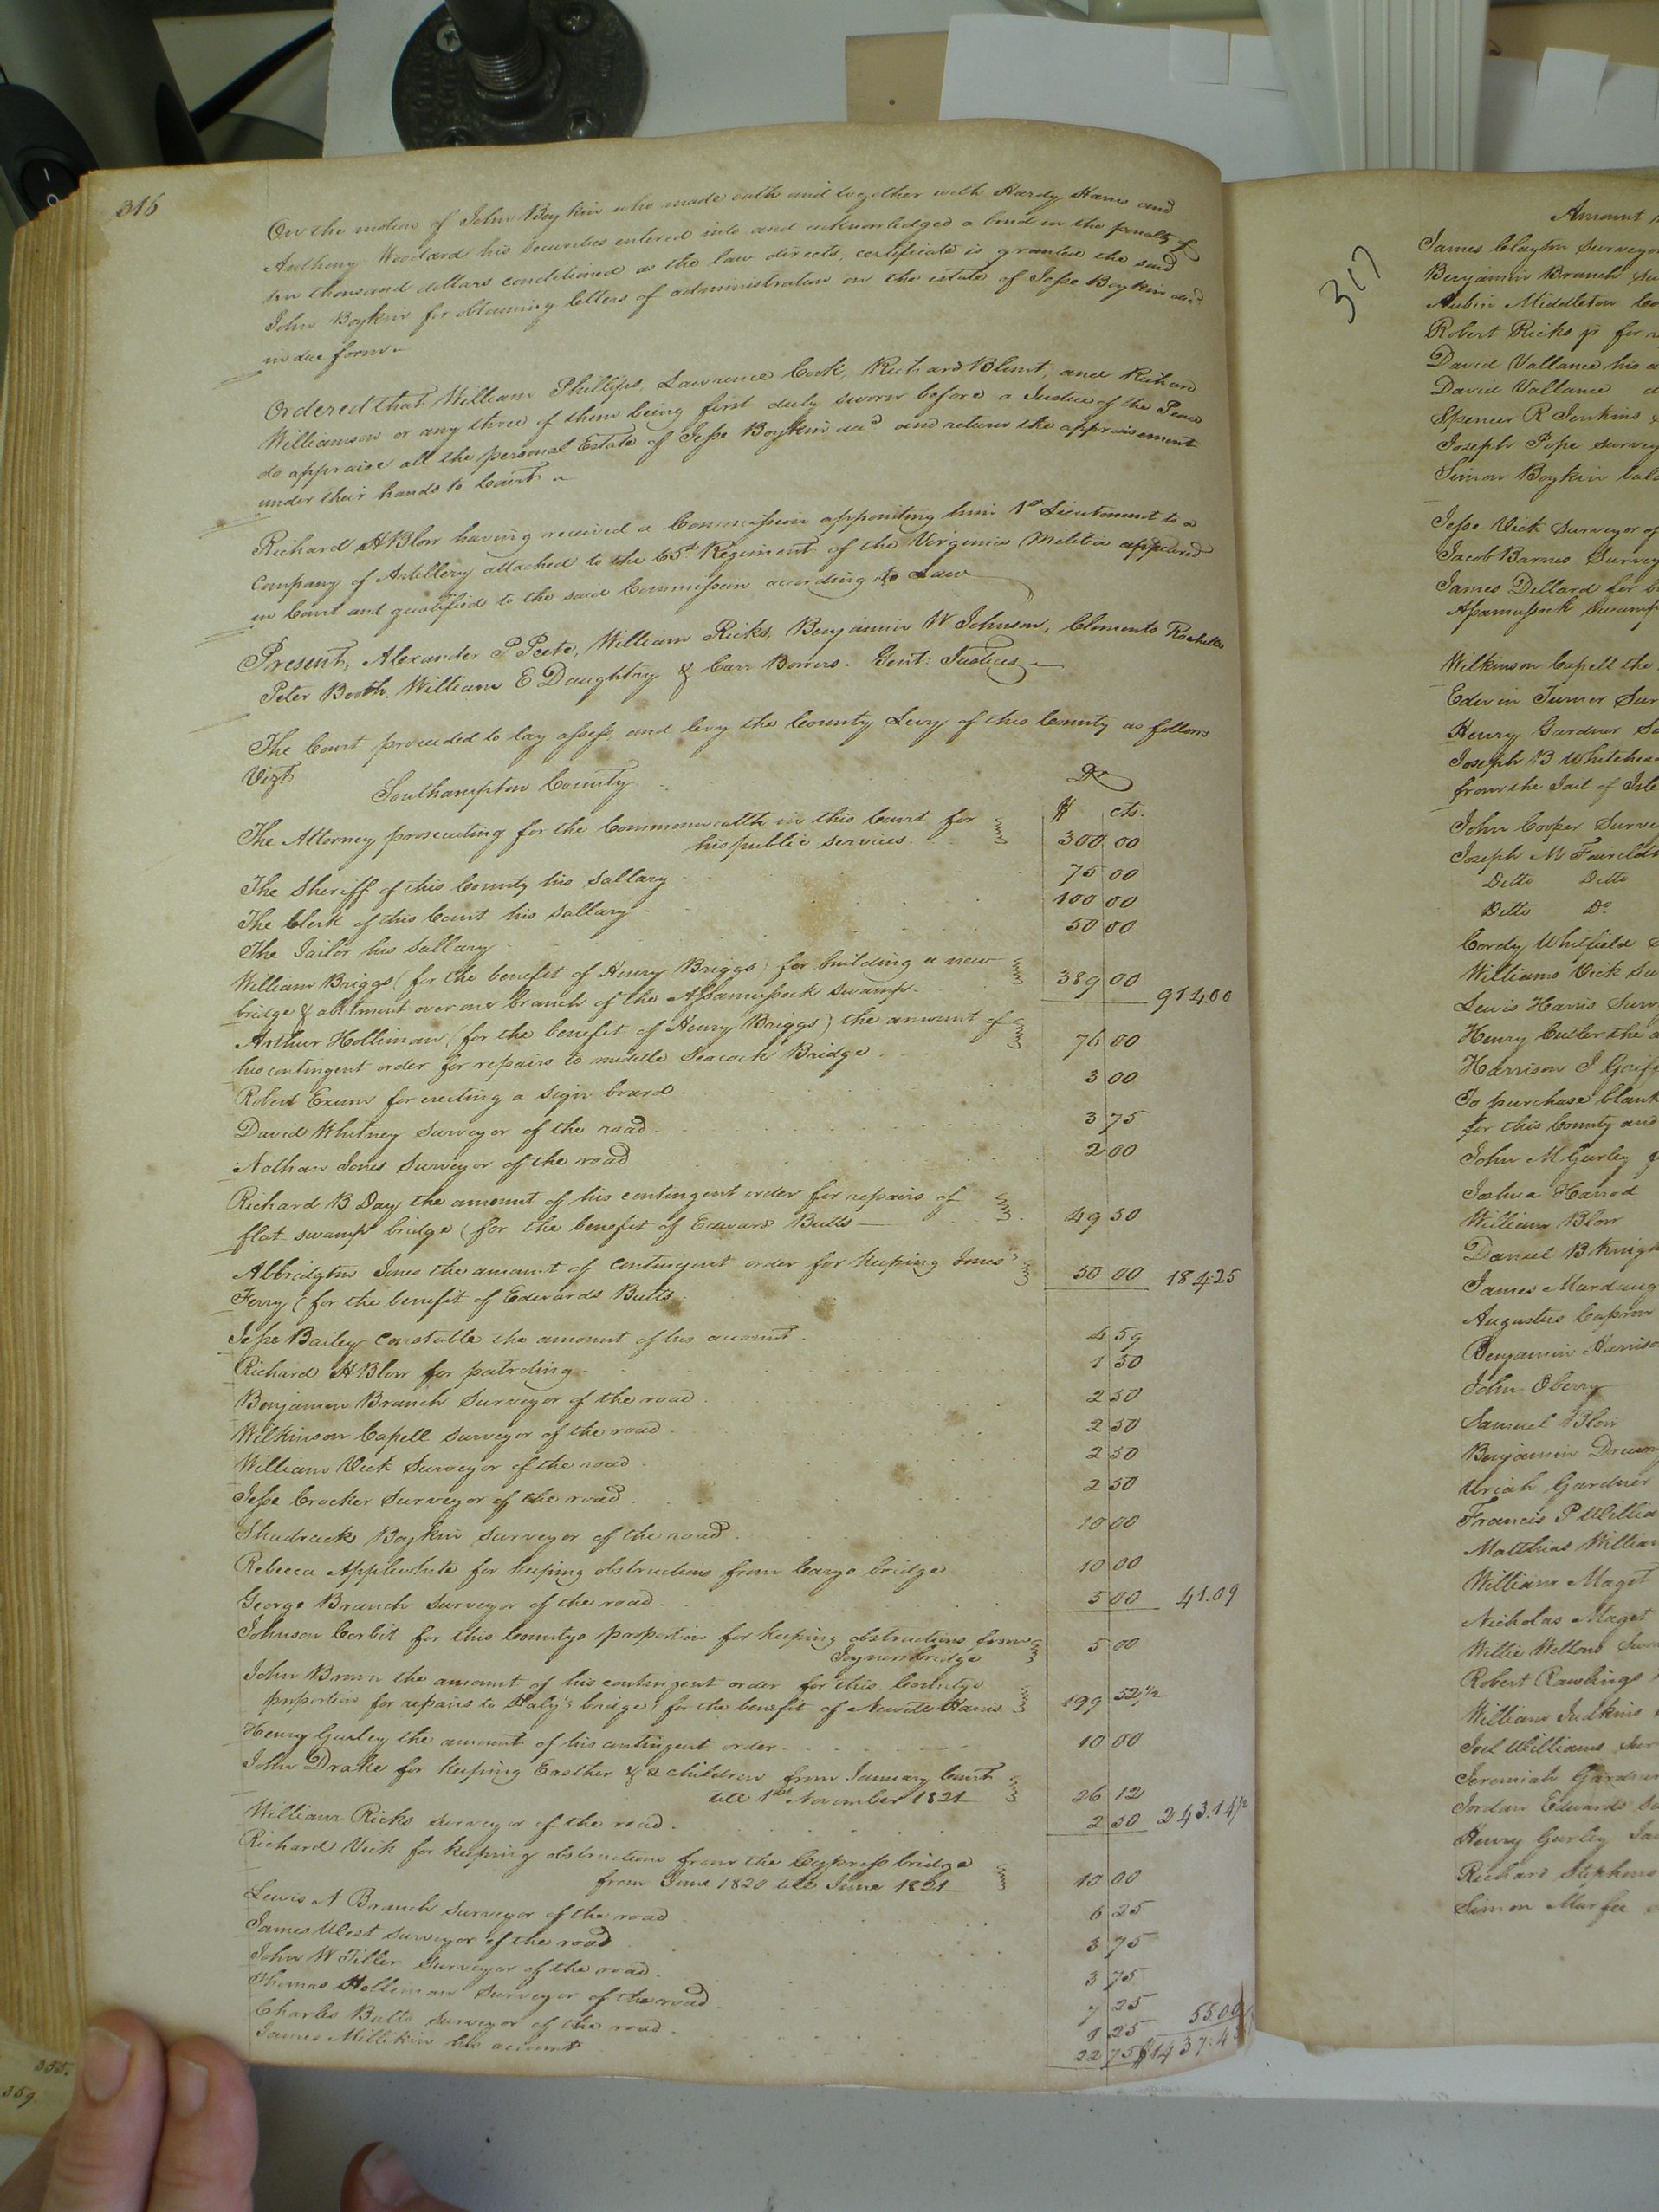 316
On the motion of John Boykin who made oath and together with Hardy Harris and
Anthony Woodard his securities entered into and acknowledged a bond in the penalty of
ten thousand dollars conditioned as the law directs, certificate is granted the said
John Boykin for obtaining letters of administration on the estate of Jesse Boykin decd
in due form
Ordered that William Phillips, Lawrence Cook, Richard Blunt, and Richard
Williamson or any three of them being first duly sworn before a Justice of the Peace
do appraise all the personal Estate of Jesse Boykin decd and return the appraisement
under their hands to Court
Richard H Blow having received a Commission appointing him 1st Lieutenant to a
Company of Artillery attached to the 65th Regiment of the Virginia Militia appeared
in Court and qualified to the said Commission according to Law
Present, Alexander P Peete, William Ricks, Benjamin W Johnson, Clements Rochelle
Peter Booth, William E Daughtry & Carr Bowers. Gent: Justices
The Court proceeded to lay assess and levy the County Levy of this County as follows
Vizt Southampton County Dr
$ cts.
The Attorney prosecuting for the Commonwealth in this Court for
his public services 300 00
The Sheriff of this County his Sallary 75 00
The Clerk of this Court his Sallary 100 00
The Jailor his Sallary 50 00
William Briggs (for the benefit of Henry Briggs) for building a new
bridge & abutment over one branch of the Assamussock swamp. 389 00 914.00
Arthur Holliman (for the benefit of Henry Briggs) the amount of
his contingent order for repairs to middle Seacock Bridge 76 00
Robert Exum for erecting a sign board 3 00
David Whitney Surveyor of the road 3 75
Nathan Jones Surveyor of the road 2 00
Richard B Day the amount of his contingent order for repairs of
flat swamp bridge (for the benefit of Edward Butts 49 50
Albridgton Jones the amount of contingent order for keeping Jones's
Ferry (for the benefit of Edwards Butts 50 00 184.25
Jesse Bailey Constable the amount of his account 4 59
Richard H Blow for patroling 1 50
Benjamin Branch Surveyor of the road 2 50
Wilkinson Capell surveyor of the road 2 50
William Vick Surveyor of the road 2 50
Jesse Crocker Surveyor of the road 2 50
Shadrack Boykin surveyor of the road 10 00
Rebecca Applewhite for keeping obstructions from Carys bridge 10 00
George Branch Surveyor of the road 5 00 41.09
Johnson Corbit for this Countys proportion for keeping obstructions from
Joyners bridge 5 00
John Brown the amount of his contingent order for this Countys
proportion for repairs to Haly's bridge (for the benefit of Newitt Harris 199 52½
Henry Gurley the amount of his contingent order 10 00
John Drake for keeping Easther & 2 children from January Court
till 1st November 1821 26 12
William Ricks surveyor of the road 2 50 243.14½
Richard Vick for keeping obstructions from the Cypress bridge
from June 1820 till June 1821 10 00
Lewis N Branch Surveyor of the road 6 25
James West Surveyor of the road 3 75
John W Tiller Surveyor of the road 3 75
Thomas Holliman Surveyor of the road 7 25
Charles Butts surveyor of the road 1 25 55.00
James Millikin his account 22 75 $1437.4
355.
359
317
Amount
James Clayton Surveyor
Benjamin Branch
Aubin Middleton
Robert Ricks jr for
David Vallance his
David Vallance
Spencer R Jenkins
Joseph Pope survey
Simon Boykin
Jesse Vick Surveyor of
Jacob Barnes Survey
James Dillard for
Assamussock swamp
Wilkinson Capell the
Edwin Turner Sur
Henry Gardner Su
Joseph B Whitehead
from the Jail of Isle
John Cooper Surve
Joseph M
Ditto Ditto
Ditto Do
Cordy Whitfield
Williams Vick Su
Lewis Harris Surv
Henry Cutler the
Harrison J Griff
To purchase blank
for this County and
John M Gurley
Joshua Harrod
William Blow
Daniel B Knigh
James Mardaug
Augustus Capron
Benjamin Harriso
John Oberry
Samuel Blow
Benjamin Drewry
Uriah Gardner
Francis P Willia
Matthias William
William Maget
Nicholas Maget
Willie Wellons Surv
Robert Rawlings
William Judkins
Joel Williams Sur
Jeremiah Gardner
Jordan Edwards Su
Henry Gurley
Richard Stephens
Simon Murfee